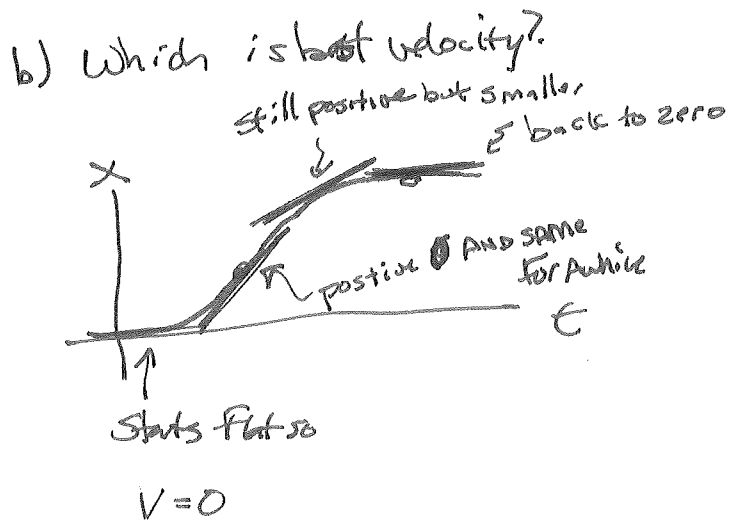 b) Which is best velocity?
still positive but smaller
back to zero
X
postive AND SAME
for Awhile
t
Starts Flat so
V = 0